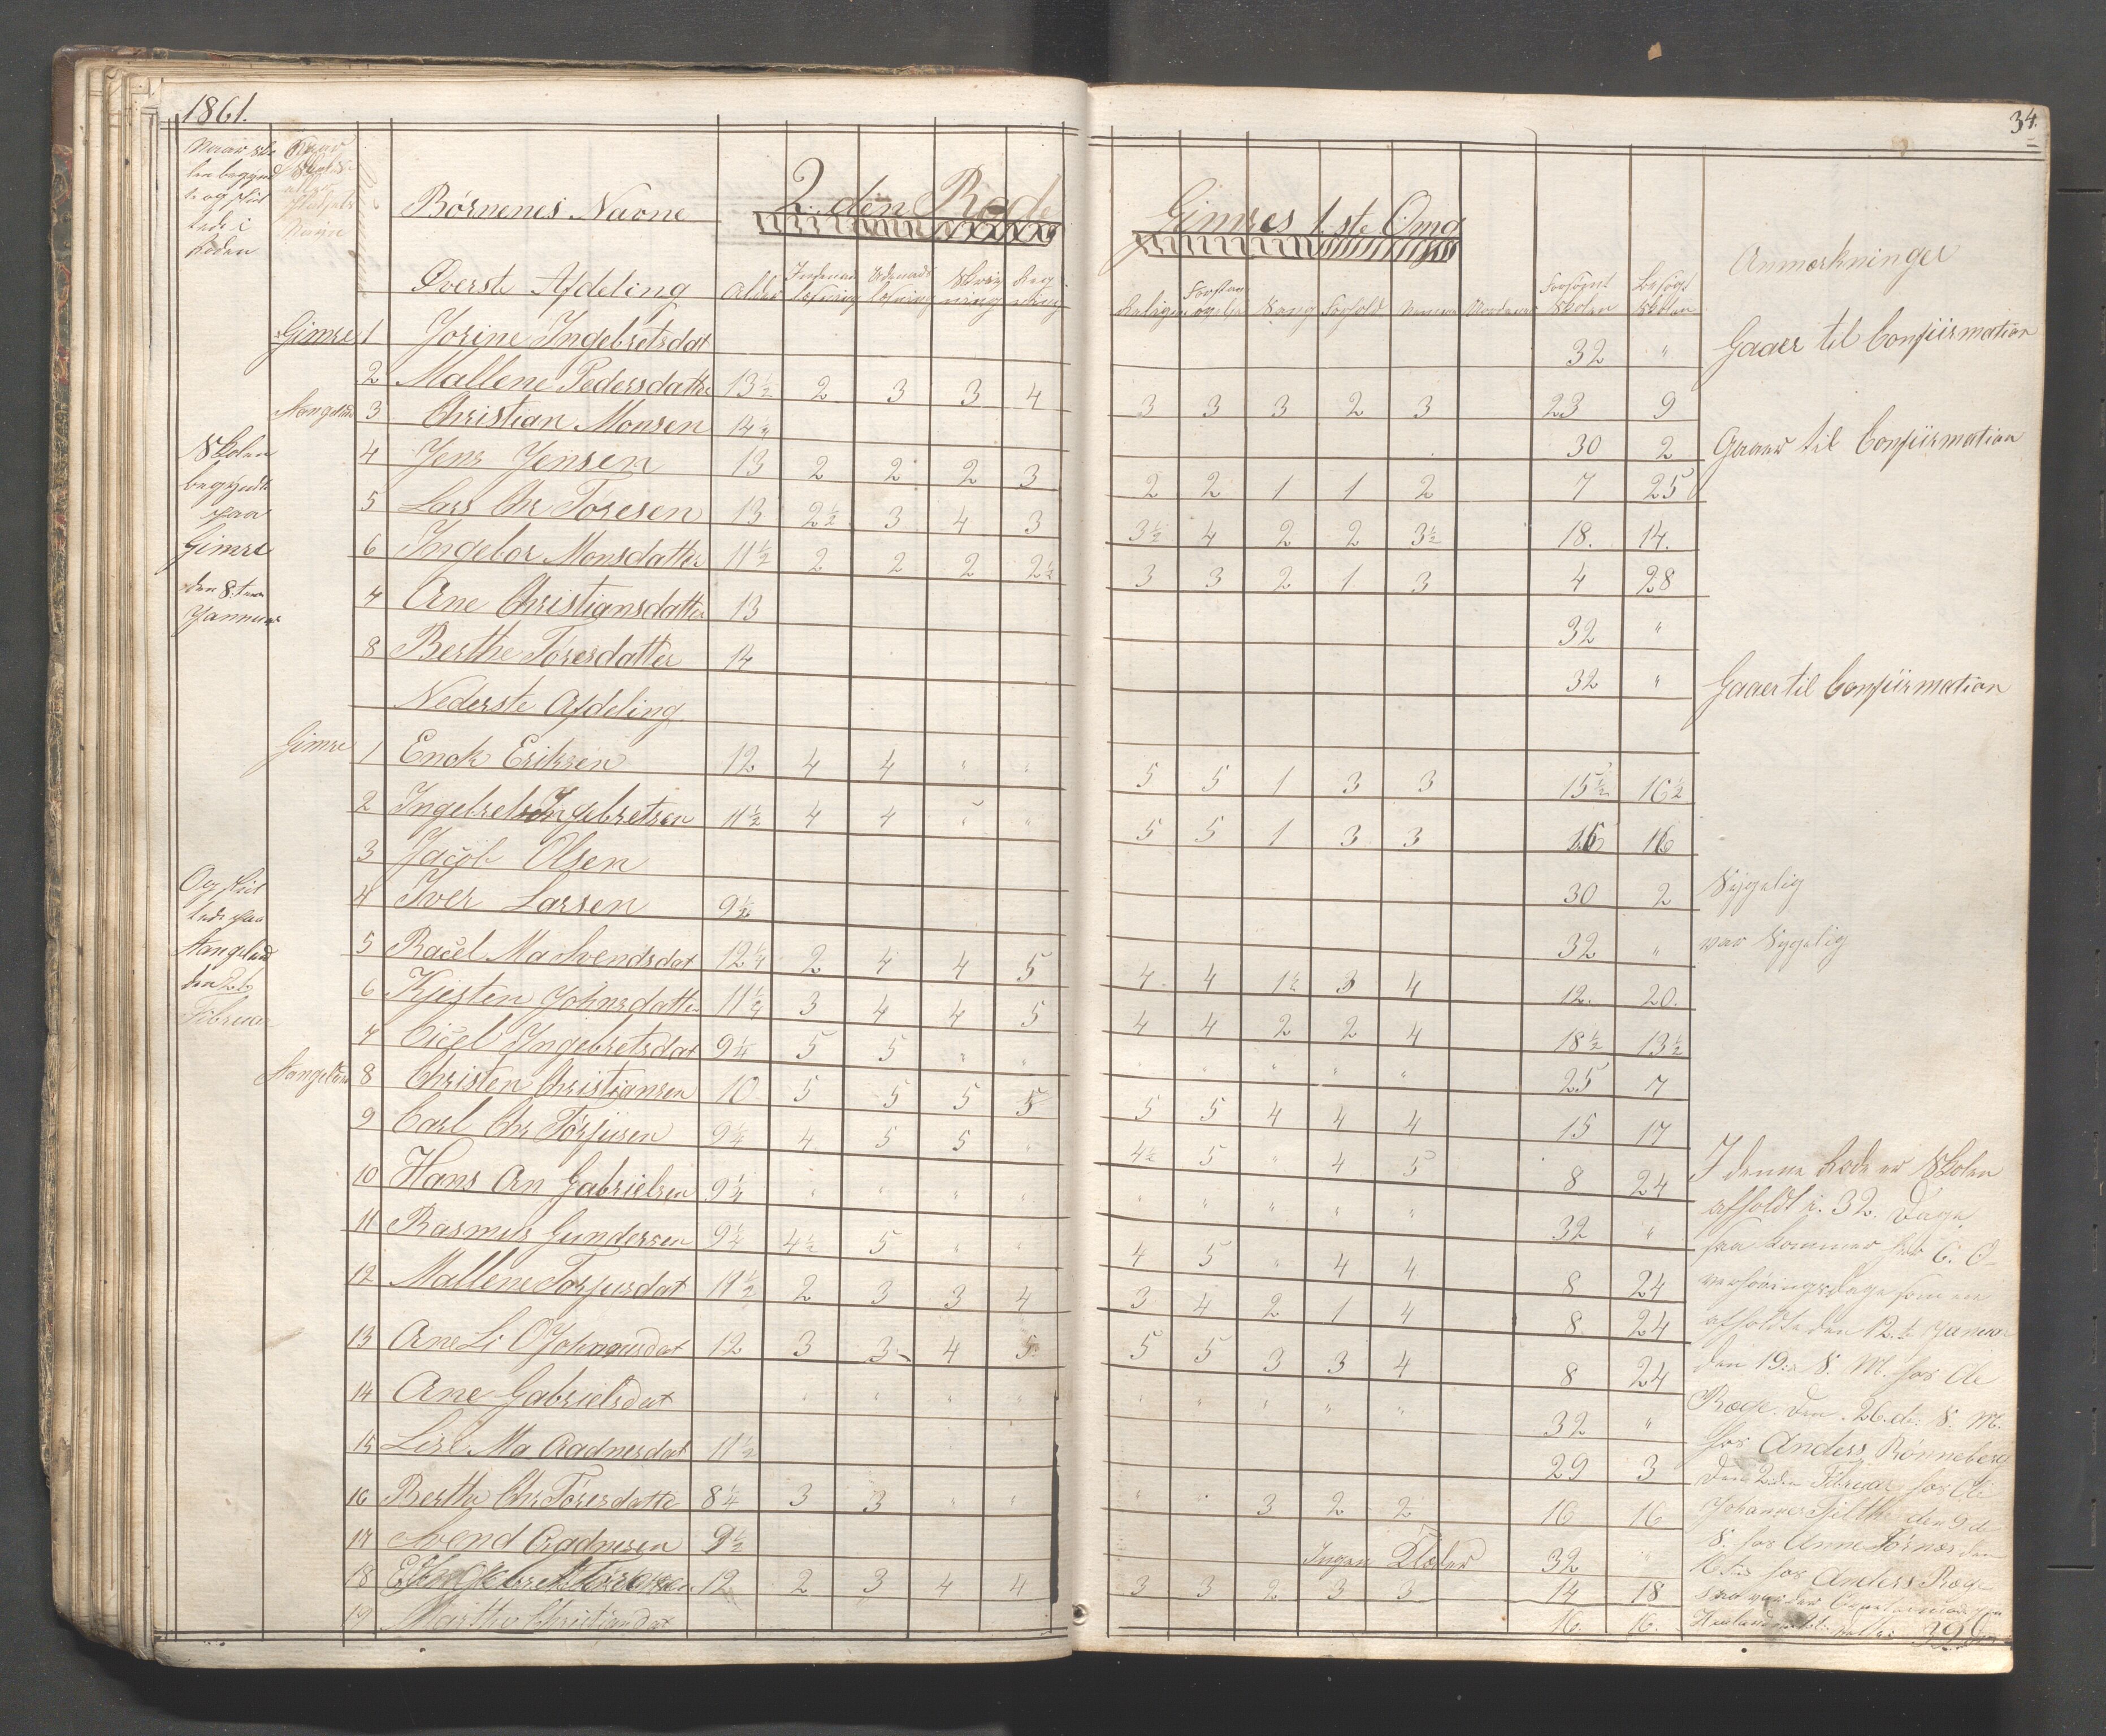 1861.
34.
Naar Sko
len begynd
te og slut
tede i
Roden
Børnenes Navne
2. den Rode
Gimres 1. ste Omg
Anmærkninger
Øverste Afdeling Alder Indenad læsning Udenads læsning Skriv ning Reg ning Religion Sang Forhold Evner Forsømt Skolen Besøgt Skolen
Gimre 1 Jorine Ingebretsdat 32 " Gaaer til Confiirmation
2 Mallene Pedersdatter 13½ 2 3 3 4 3 3 3 2 3 23 9
Stangeland 3 Christian Monsen 14 " 30 2 Gaaer til Confiirmation
4 Jens Jensen 13 2 2 2 3 2 2 1 1 2 7 25
5 Lars Chr Tøresen 13 2½ 3 4 3 3½ 4 2 2 3½ 18. 14.
6 Ingebor Monsdatter 11½ 2 2 2 2½ 3 3 2 1 3 4 28
7 Ane Christiansdatter 13 32 "
8 Berthe Toresdatter 14 32 " Gaaer til Confiirmation
Skolen
begyndte
paa
Gimre
den 8. tende
Januar
Nederste Afdeling
Gimre 1 Enok Eriksen 12 4 4 " " 5 5 1 3 3 15½ 16½
2 Ingebret Ingebretsen 11½ 4 4 " " 5 5 1 3 3 16 16
3 Jacob Olsen 30 2 Sygelig
4 Iver Larsen 9½ 32 " var Sygelig
5 Racel Ma Svendsdat 12¼ 2 4 4 5 4 4 1½ 3 4 12. 20.
6 Kjesten Johnsdatter 11¼ 3 4 4 5 4 4 2 2 4 18½ 13½
7 Cicel Ingebretsdat 9¼ 5 5 " " " " " " " 25 7
Stangeland 8 Christen Christiansen 10 5 5 5 5 5 5 4 4 4 15 17
9 Carl Chr Torjusen 9¼ 4 5 5 " 4½ 5 " 4 5 8 24
10 Hans An Gabrielsen 9¼ " " " " " " " " " 32 "
11 Rasmus Gundersen 9¼ 4½ 5 " " 4 5 " 4 4 8 24
12 Mallene Torjusdat 11½ 2 3 3 4 3 4 2 1 4 8 24
13 Ane Li O Johnnesdat 12 3 3 4 5 5 5 3 3 4 8 24
14 Ane Gabrielsdat " " " " " " " " " 32 "
15 Lise Ma Aadnesdat 11½ 29 3
16 Berthe Chr Toresdatte 8¼ 3 3 " " " " 3 2 2 16 16
17 Svend Aadnesen 9½ Ingen 32 "
18 12 2 3 4 4 3 3 2 3 3 14 18
19 Marthe Christiandat 16. 16.
Og slut
tede paa
Stangeland
den
Februar
I denne Rode er Skolen
afholdt i 32. Dage
saa kommer her 6. O
verhøringsdage som ere
afholdte den 12. te Januar
den 19. S. M. hos Ole
Roge. den 26. de S. M.
hos Anders Rønneberg
den 2 den Februar hos Ole
Johannes den 9 de
S. hos Anne den
16 te hos Anders Roge